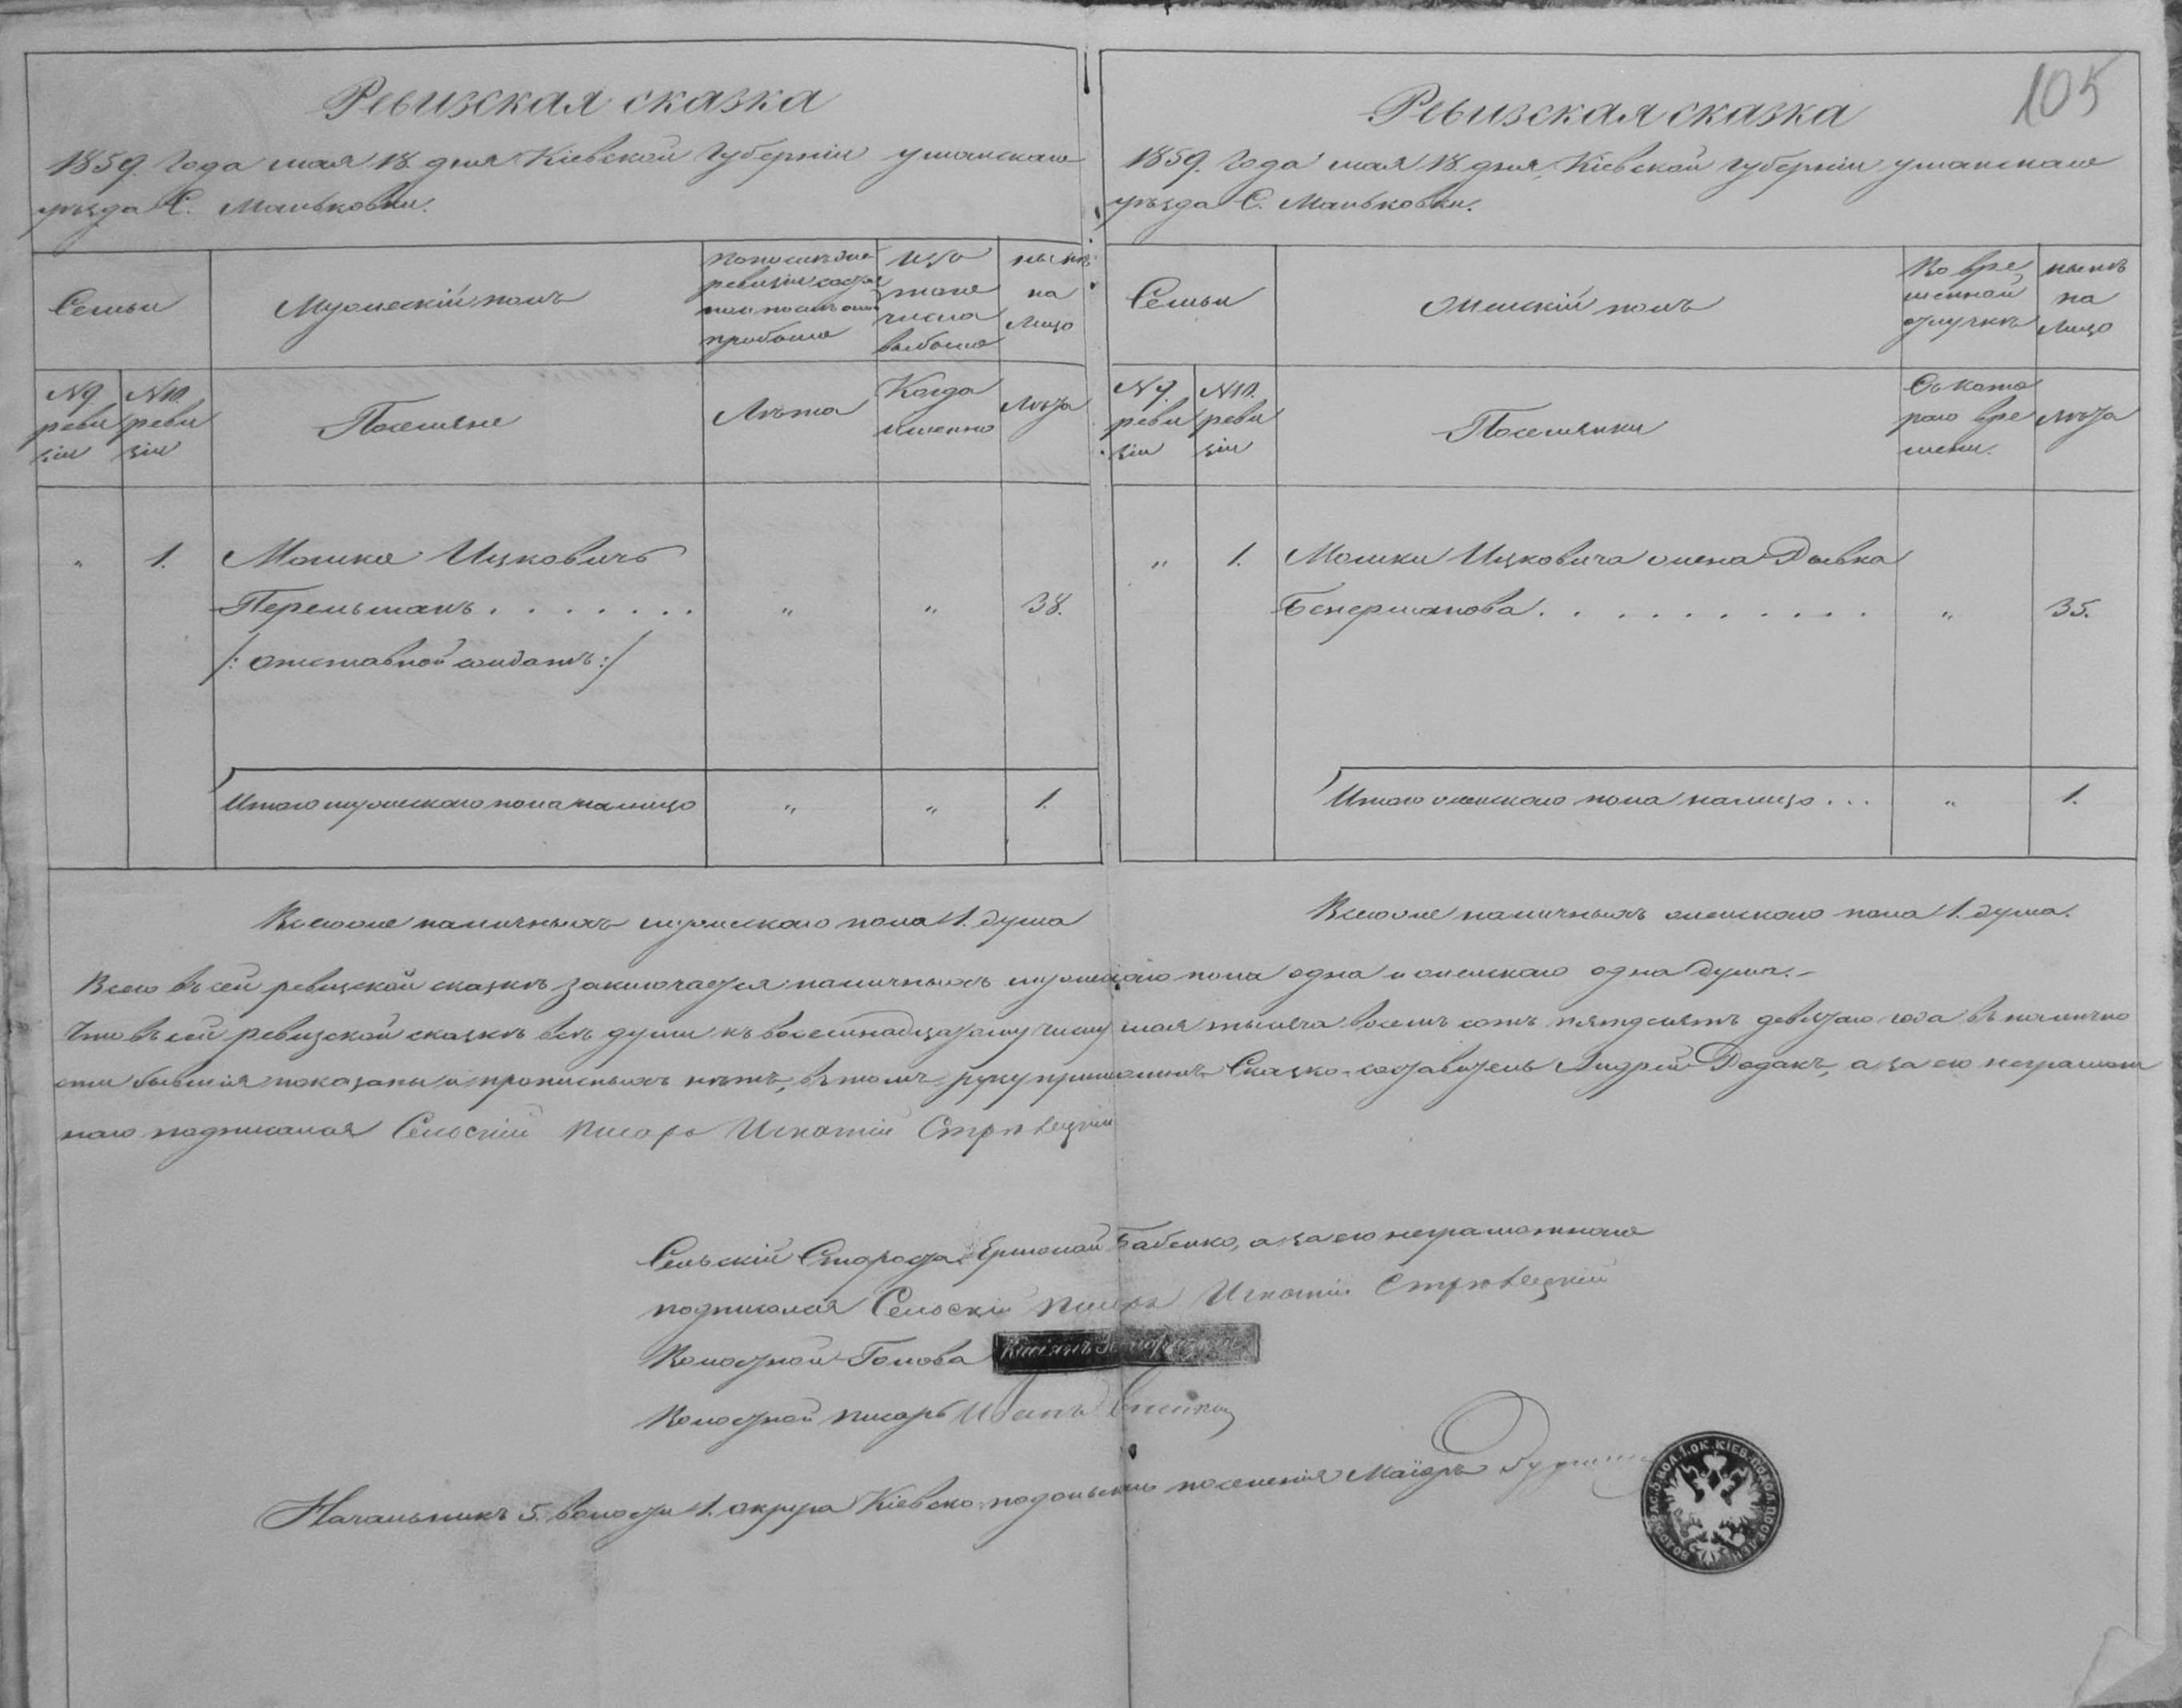 105
Ревизская сказка
1859. Года мая 18 дня Кіевской Губерніи уманскаго
уѣзда С. Маньковки.
Семьи
Мужескій полъ
По послѣдней
ревизіи состоя
ло и послѣ оной
прибыло
изъ
того
числа
выбыло
нынѣ
на
лицо
№ 9.
реви
зіи
№ 10.
реви
зіи
Поселяне
Лѣта
Когда
именно
Лѣта
" 1. Мошко Ицковичъ
Перельманъ . . . . . . . " " 38.
/: отставной солдатъ :/
Итого мужескаго пола на лицо " " 1.
Всего же наличныхъ мужескаго пола 1. душа
Ревизская сказка
1859. Года мая 18 дня, Кіевской Губерніи уманскаго
уѣзда С. Маньковки.
Семьи
Женскій полъ
Во вре
менной
отлучкѣ
нынѣ
на
лицо
№ 9.
реви
зіи
№ 10.
реви
зіи
Поселянки
Съ кото
раго вре
мени.
лѣта
" 1. Мошки Ицковича жена Двыка
Бенермanова . . . . . . . . . " 35.
Итого женскаго пола на лицо . . . " 1.
Всего же наличныхъ женскаго пола 1. душа.
Всего въ сей ревизской сказкѣ заключается наличныхъ мужескаго пола одна и женскаго одна душа.-
Что въ сей ревизской сказкѣ всѣ души къ восемнадцатому числу мая тысяча восемь сотъ пятдесятъ девятаго года въ налично
сти бывшія показаны и прописныхъ нѣтъ, въ томъ руку приложилъ Сказко-составитель Андрей Додакъ, а за его неграмот
наго подписался Сельскій писарь Игнатій
Сельскій Староста Ермолай Бабенко, а за его неграмотнаго
подписался Сельскій писарь Игнатій
Волостной Голова
Волостной писарь Иванъ
Начальникъ 5. волости 1. округа Кіевско-подольскаго поселенія Маіоръ